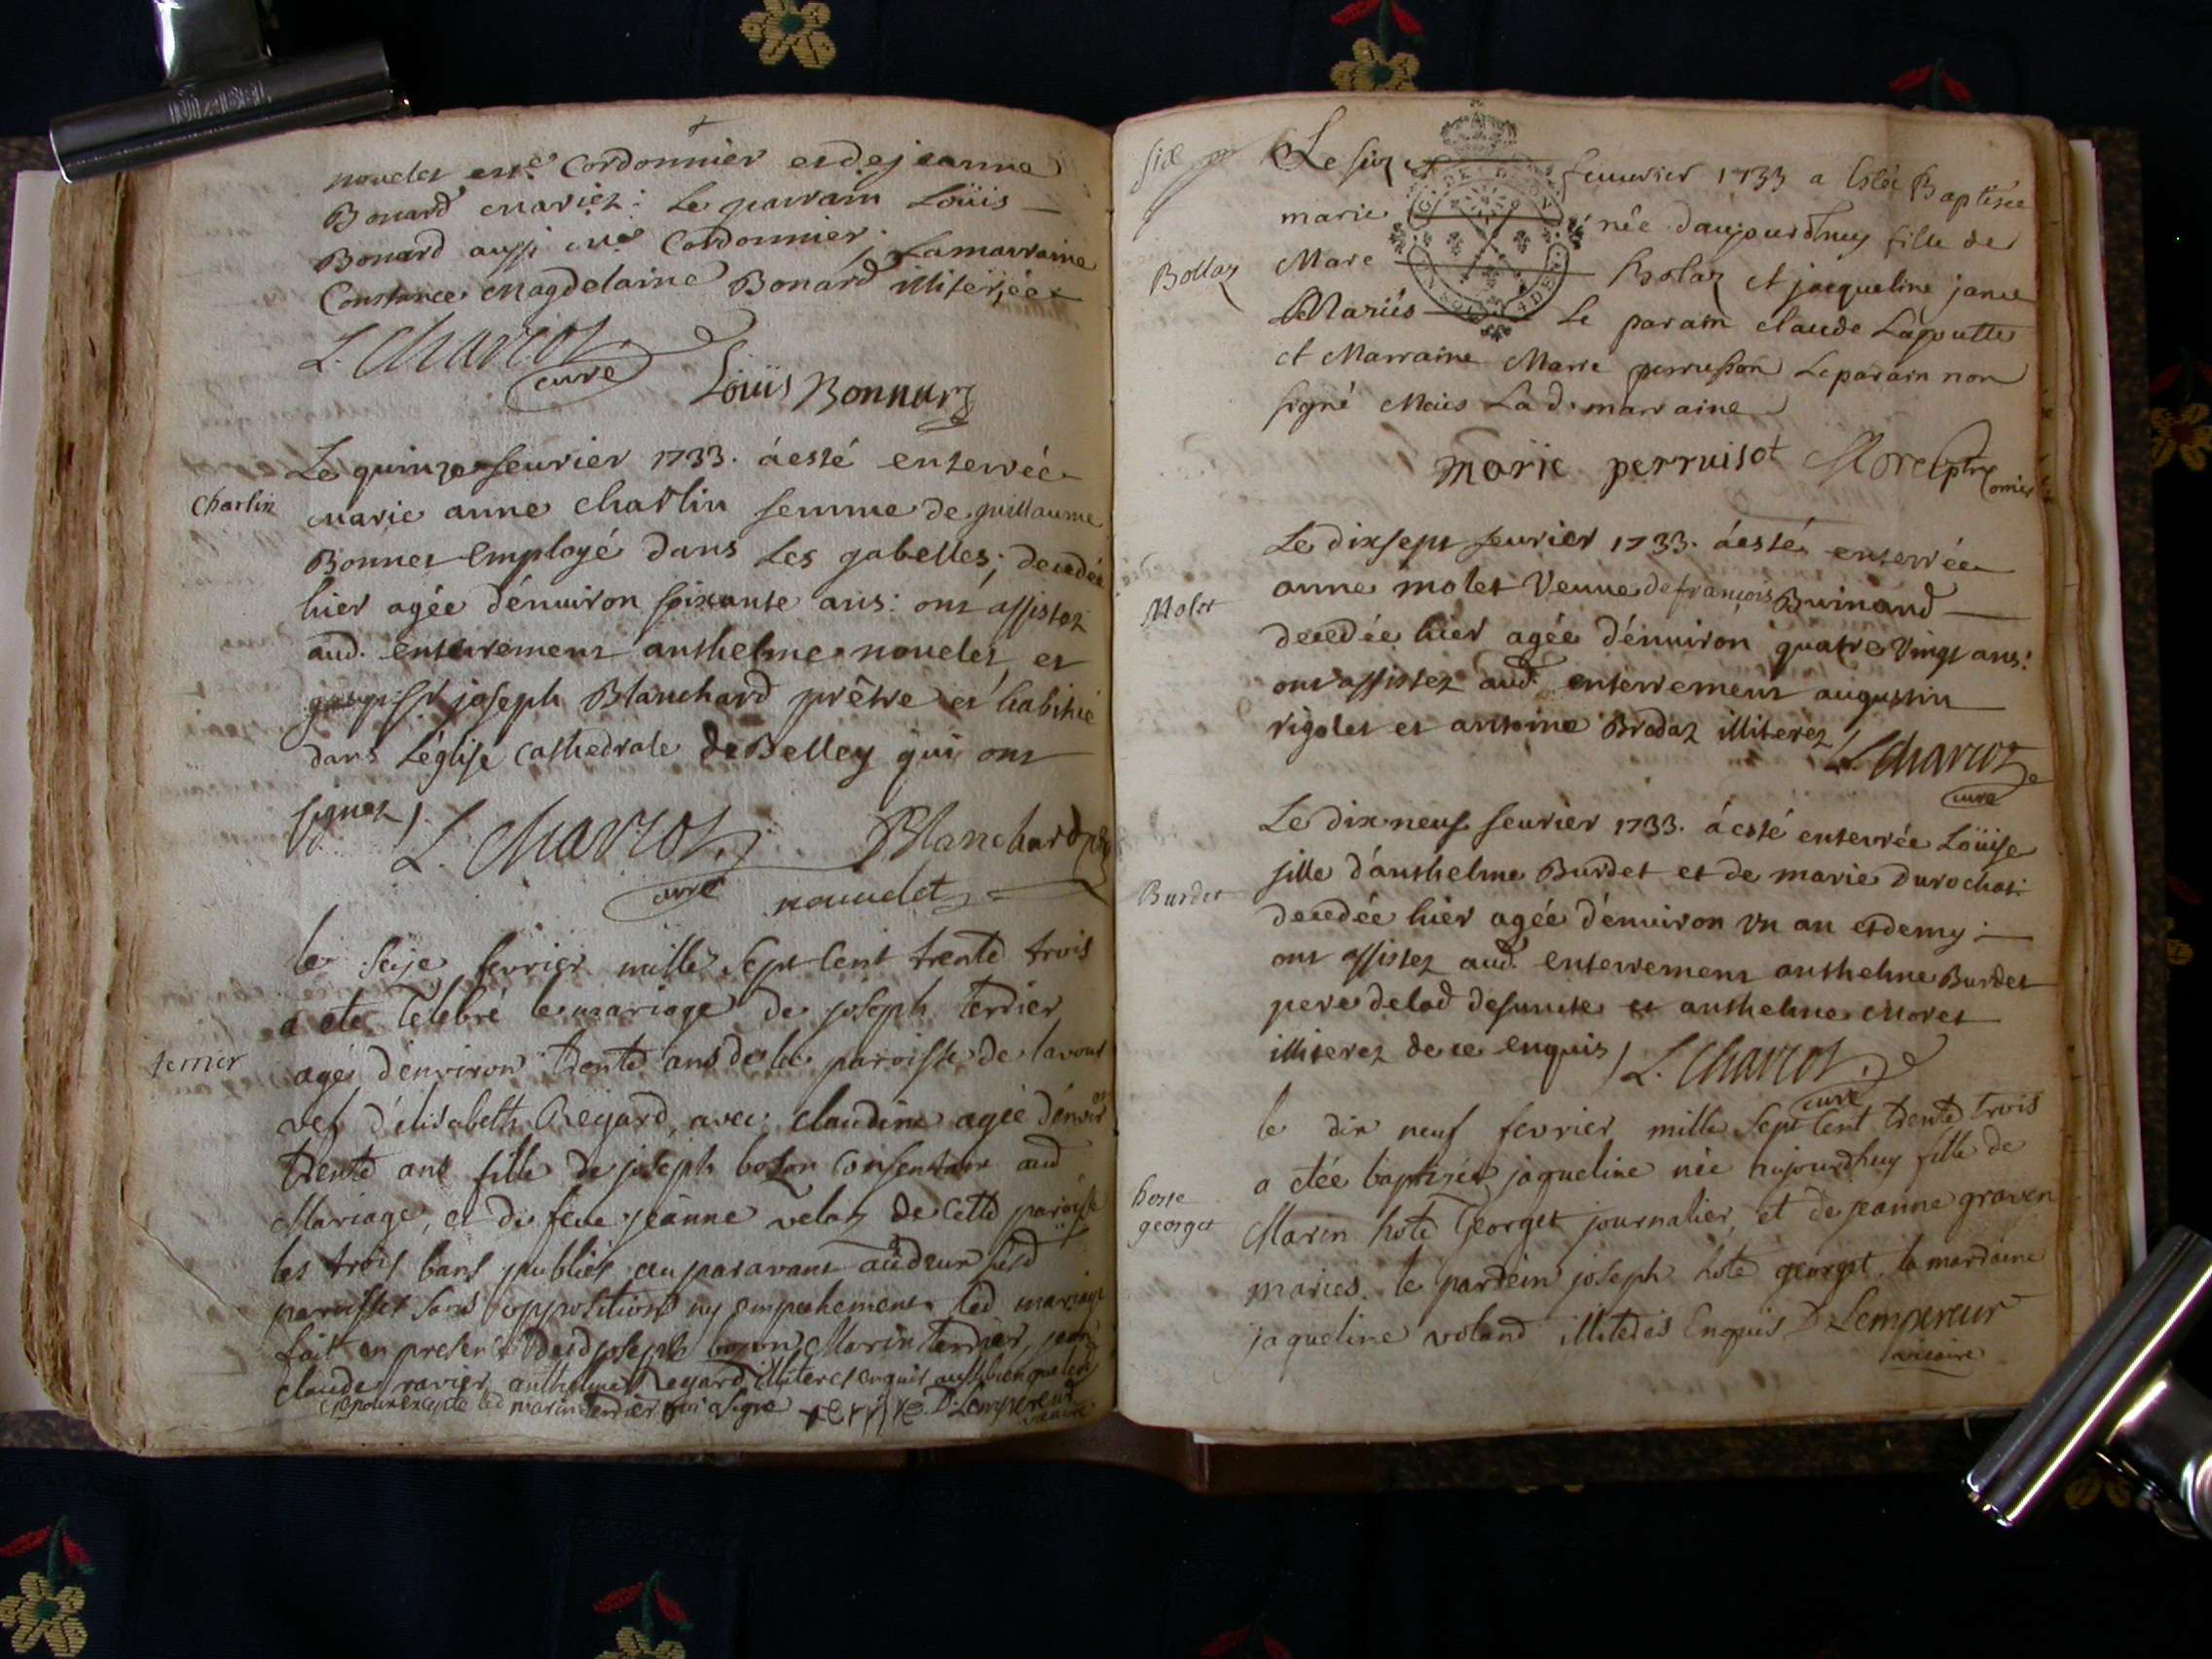 nouelet me Cordonnier et de jeanne
Bonard mariez: Le parrain Loüis
Bonard aussi me Cordonnier, La marraine
Constance Magdelaine Bonard illiterée
L. Charcot
curé
Loüis Bonnard
Charlin
Le quinze feurier 1733. á esté enterrée
marie anne Charlin femme de guillaume
Bonnet Employé dans Les gabelles; decedée
hier agée d'enuiron soixante ans: ont assistez
aud. enterrement anthelme nouelet, et
joseph Blanchard prêtre et habitué
dans L'église Cathedrale de Belley qui ont
signez
L. Charcot
curé
Blanchard
nouuelet
le seize fevrier mille Sept Cent trente trois
a ete Celebré le mariage de joseph terrier
terrier
agé d'environ trente ans de la paroisse de lavour
vef d'elisabeth Regard, avec claudine agée d'enviro
trente ans fille de joseph bozon Consentant aud
Mariage, et de feue jeanne velaz de Cette paroisse
les trois bans publiés auparavant
paroisses sans opposition ny empechement led mariage
fait en presence dud joseph bozon, Marin terrier, jean
claude ravier, anthelme Regard illiteres enquis aussi bien que led
epoux excepté led marin terrier qui a signe terrier D. Lempereur
vicaire
six
Le six feuurier 1733 a Estée Baptisée
marie née d'aujourd'huy fille de
Bollaz
Marc Bolaz et jacqueline janie
Mariés Le parain claude Lagoutte
et Marraine Marie perrusson Le parain non
signé Mais La d. marraine
marie perruisot Morel ptre
comis
Le dix sept feurier 1733. á esté enterrée
Molet
anne molet Veuue de françois Buinand
decedée hier agée d'énuiron quatre Vingt ans:
ont assistez aud. enterrement augustin
rigolet et antoine Brodaz illiterez
L. Charcot
curé
Le dix neuf feurier 1733. á esté enterrée Loüise
Burdet
fille d'anthelme Burdet et de marie Durochat
decedée hier agée d'énuiron vn an et demy:
ont assistez aud. enterrement anthelme Burdet
pere de lad defuncte et anthelme Moret
illiterez de ce enquis L. Charcot
curé
le dix neuf fevrier mille Sept Cent trente trois
a etée baptisée jaqueline née aujourdhuy fille de
hoste
georget
Marin hote Georget journalier, et de jeanne graven
maries. le parrein joseph hote georget la marraine
jaqueline voland illiterés Enquis D. Lempereur
vicaire